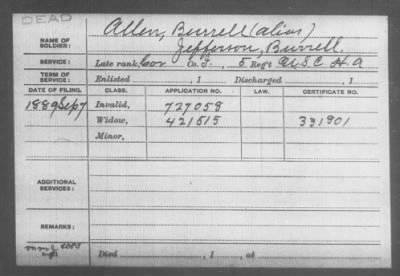 DEAD
NAME OF SOLDIER: Allen, Burrell (alias)
Jefferson, Burrell.
SERVICE: Late rank, Cor Co. I, 5 Regt U.S.C.H.A
TERM OF SERVICE: Enlisted , 1 Discharged , 1
DATE OF FILING. CLASS. APPLICATION NO. LAW. CERTIFICATE NO.
1889 Sep 7 Invalid, 727058
Widow, 421515 331901
Minor,
ADDITIONAL SERVICES:
REMARKS:
Died , 1 , at